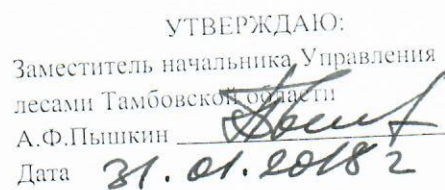 УТВЕРЖДАЮ:
Заместитель начальника Управления
лесами Тамбовской области
А.Ф.Пышкин
Дата 31.01.2018 г